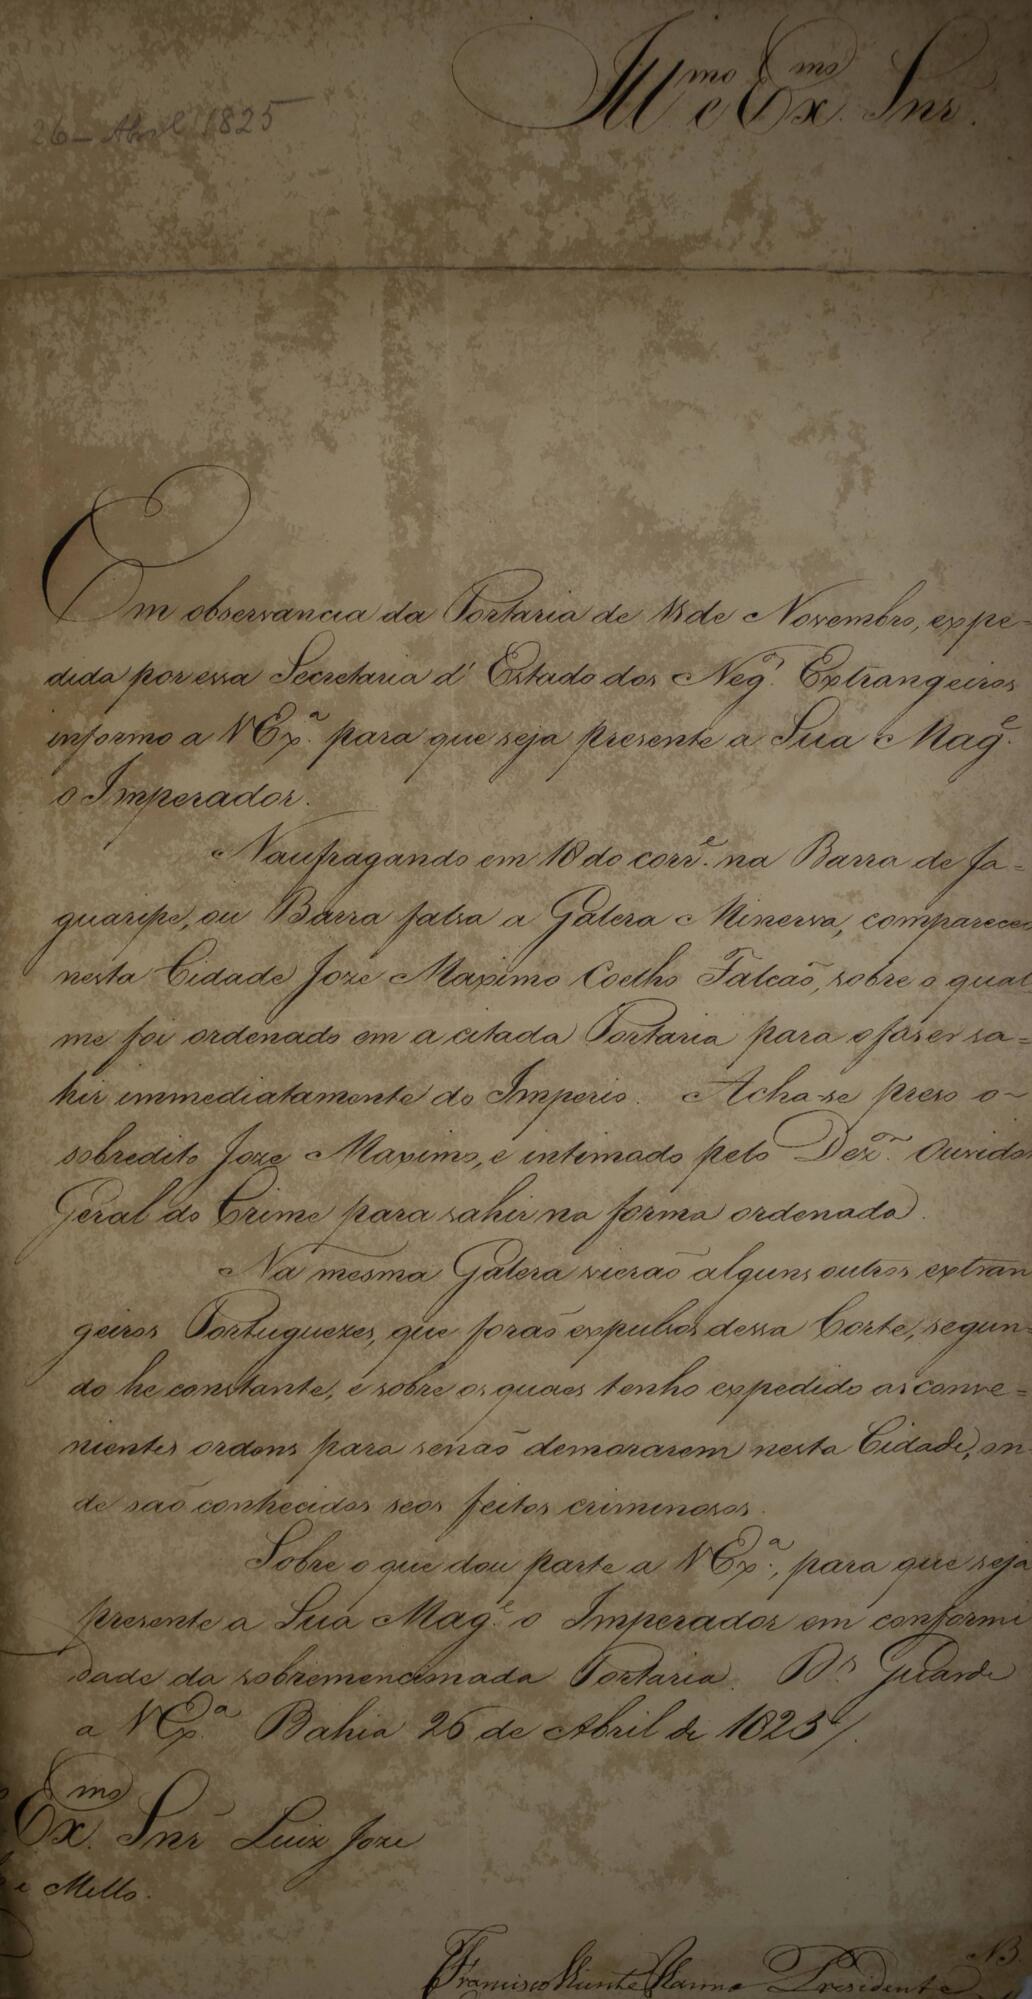 26 - Abril 1825
Illmo e Exmo Snr.
Em observancia da Portaria de 15 de Novembro, expe=
dida por essa Secretaria d'Estado dos Negos. Extrangeiros
informo a VExa. para que seja presente a Sua Mage.
o Imperador.
Naufragando em 18 do corre. na Barra de Ja=
guaripe, ou Barra falsa a Galera Minerva, compareceu
nesta Cidade Joze Maximo Coelho Falcaõ, sobre o qual
me foi ordenado em a citada Portaria para o faser sa=
hir immediatamente do Imperio. Acha-se preso o
sobredito Joze Maximo, e intimado pelo Dezor. Ouvidor
Geral do Crime para sahir na forma ordenada.
Na mesma Galera vieraõ alguns outros extran
geiros Portuguezes, que foraõ expulsos dessa Corte, segun=
do he constante, e sobre os quaes tenho expedido as conve=
nientes ordens para senaõ demorarem nesta Cidade, on
de saõ conhecidos seos feitos criminosos.
Sobre o que dou parte a VExa., para que seja
presente a Sua Mage. o Imperador em conformi
dade da sobremencionada Portaria. Ds. Guarde
a VExa. Bahia 26 de Abril de 1825/.
Exmo Snr Luiz Joze
e Mello.
Francisco Vicente Vianna Presidente
NB